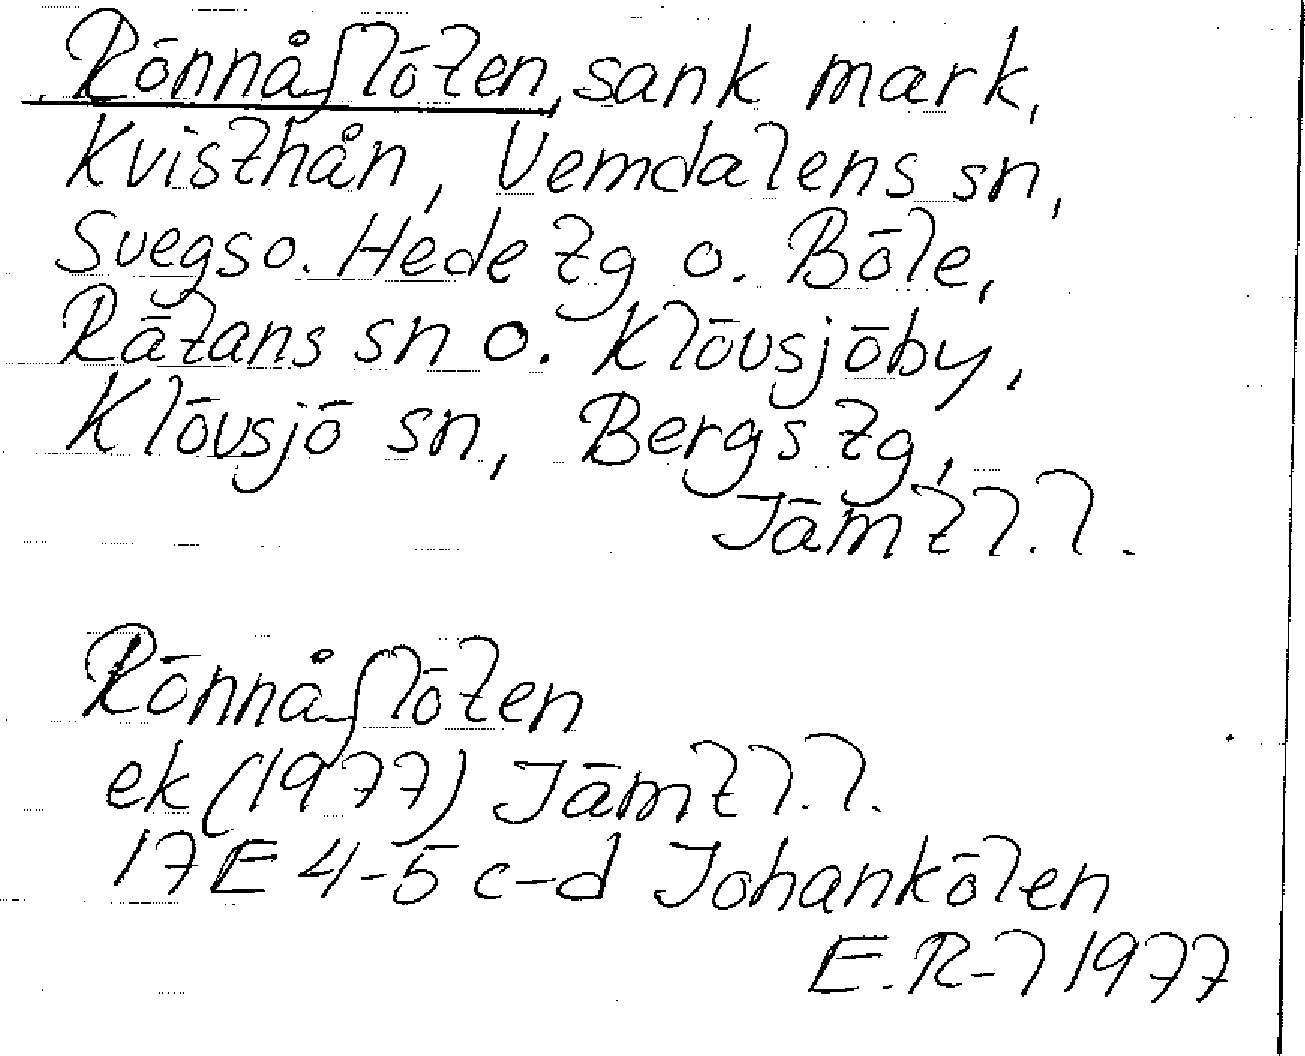 Rönnåflöten, sank mark,
Kvisthån, Vemdalens sn,
Svegs o. Hede tg o. Böle,
Rätans sn o. Klövsjöby,
Klövsjö sn, Bergs tg,
Jämtl.l.
Rönnåflöten
ek (1977) Jämtl.l.
17E 4-5 c-d Johankölen
E.R-l 1977